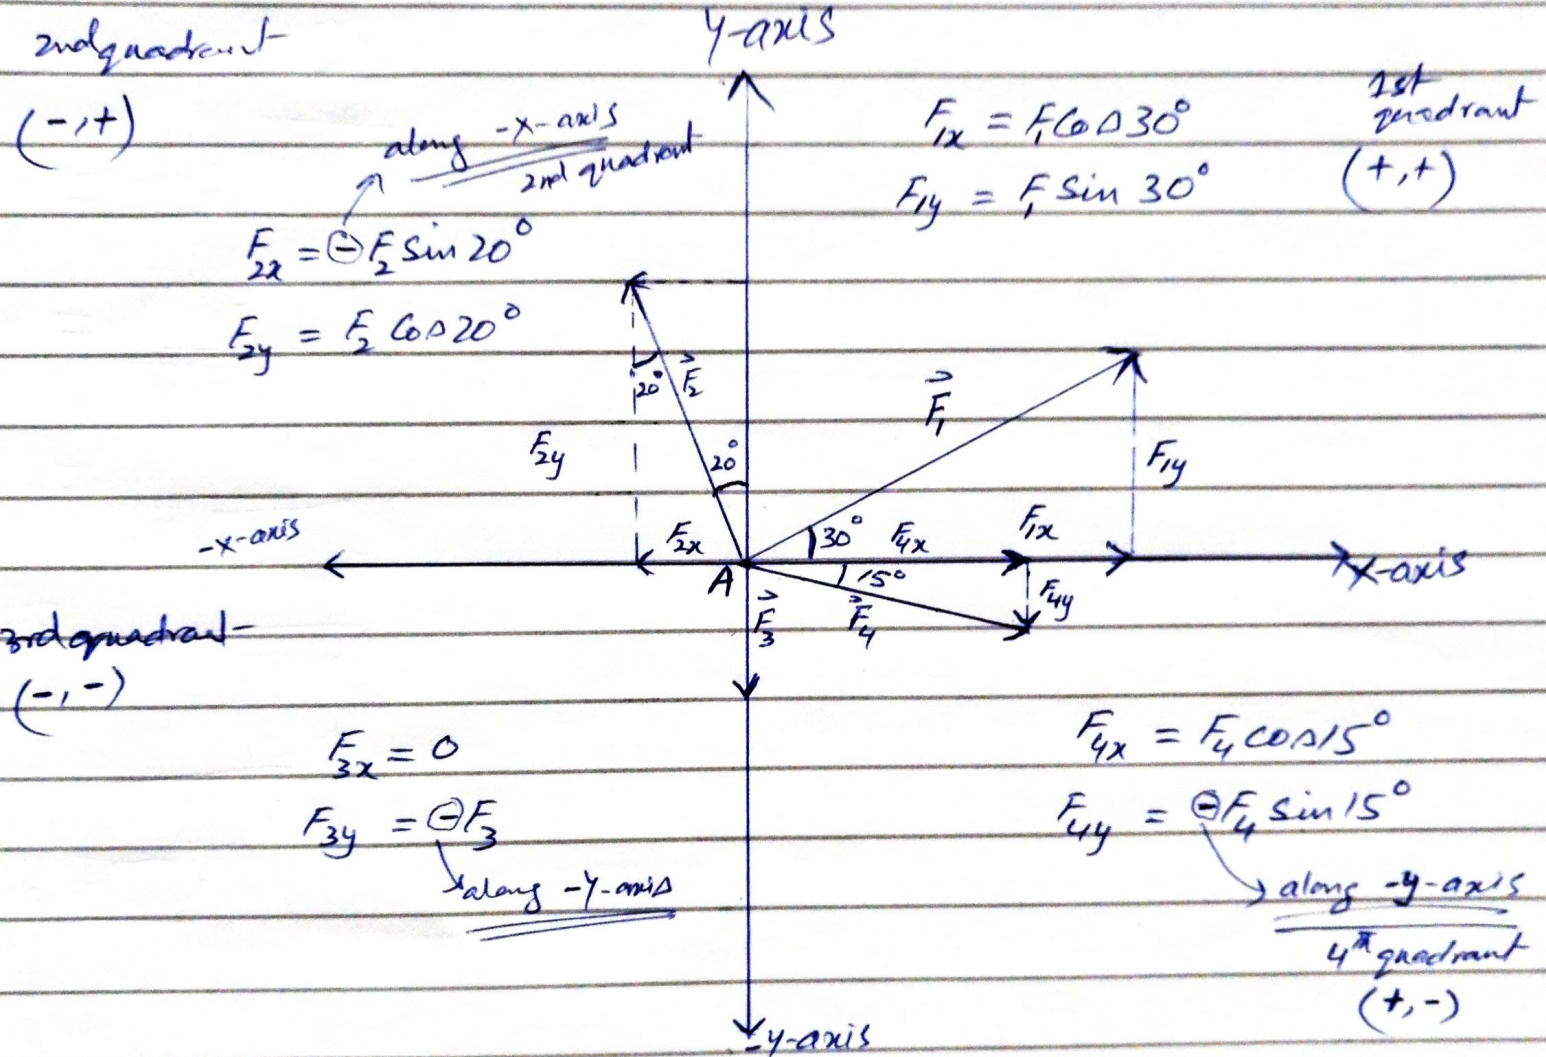 2nd quadrant
(-,+)
along -x-axis
2nd quadrant
F2x = ⊖ F2 Sin 20°
F2y = F2 Cos 20°
Y-axis
F1x = F1 Cos 30°
F1y = F1 Sin 30°
1st
quadrant
(+,+)
20°
F⃗2
F2y
20°
F⃗1
F1y
-x-axis
F2x
A
30°
F4x
F1x
X-axis
15°
F⃗4
F4y
F⃗3
3rd quadrant
(-,-)
F3x = 0
F3y = ⊖F3
along -Y-axis
F4x = F4 cos 15°
F4y = ⊖F4 Sin 15°
along -y-axis
4th quadrant
(+,-)
-Y-axis